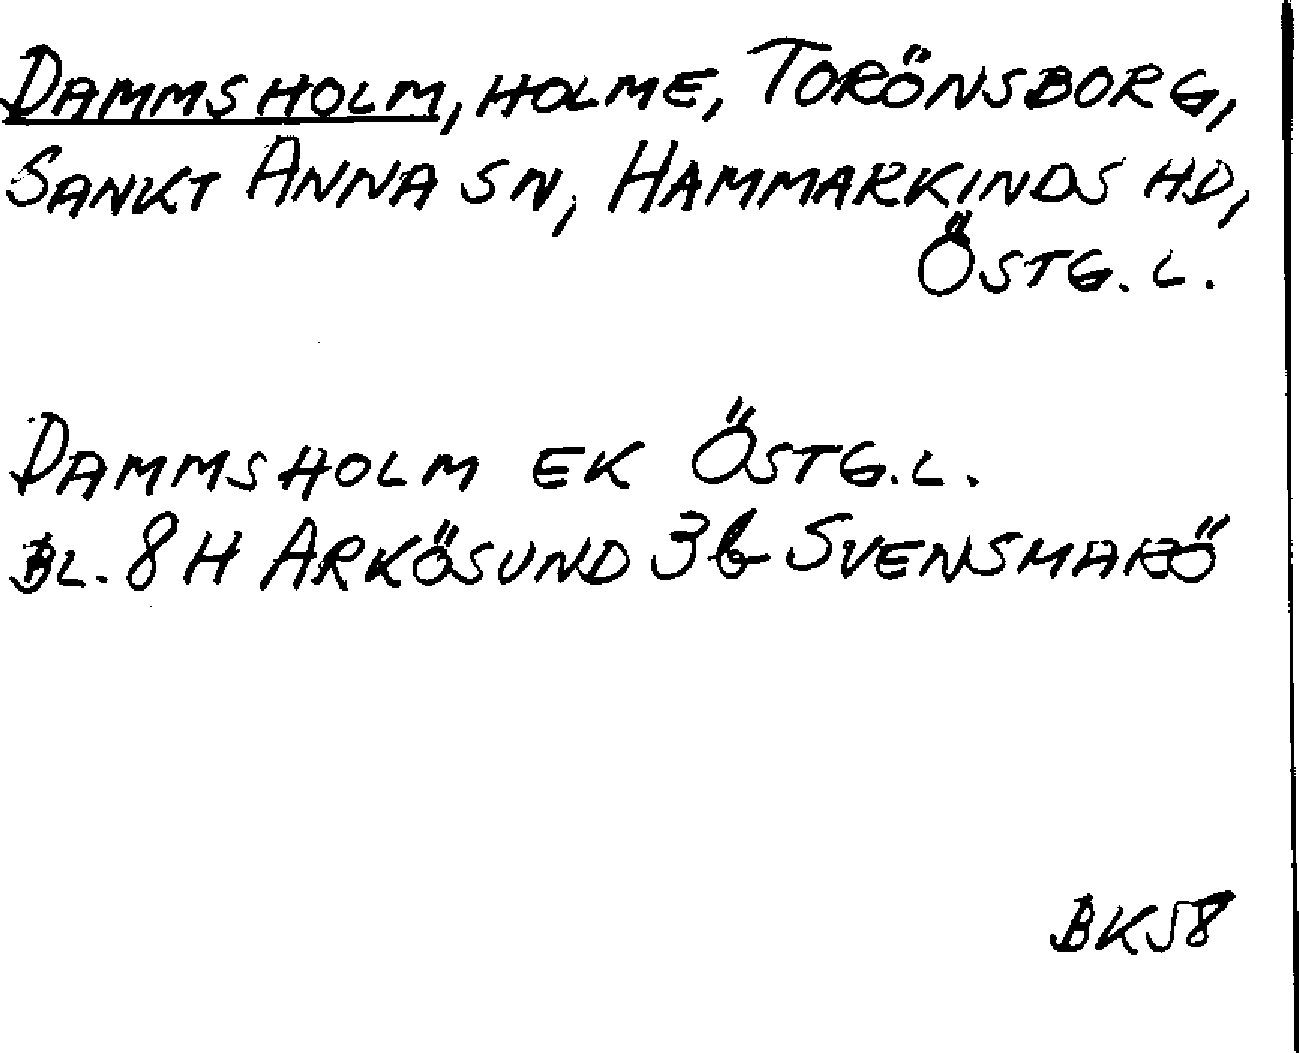 DAMMSHOLM, HOLME, TORÖNSBORG,
SANKT ANNA SN, HAMMARKINDS HD,
ÖSTG. L.
DAMMSHOLM EK ÖSTG.L.
BL. 8H ARKÖSUND 3b SVENSMARÖ
BK58